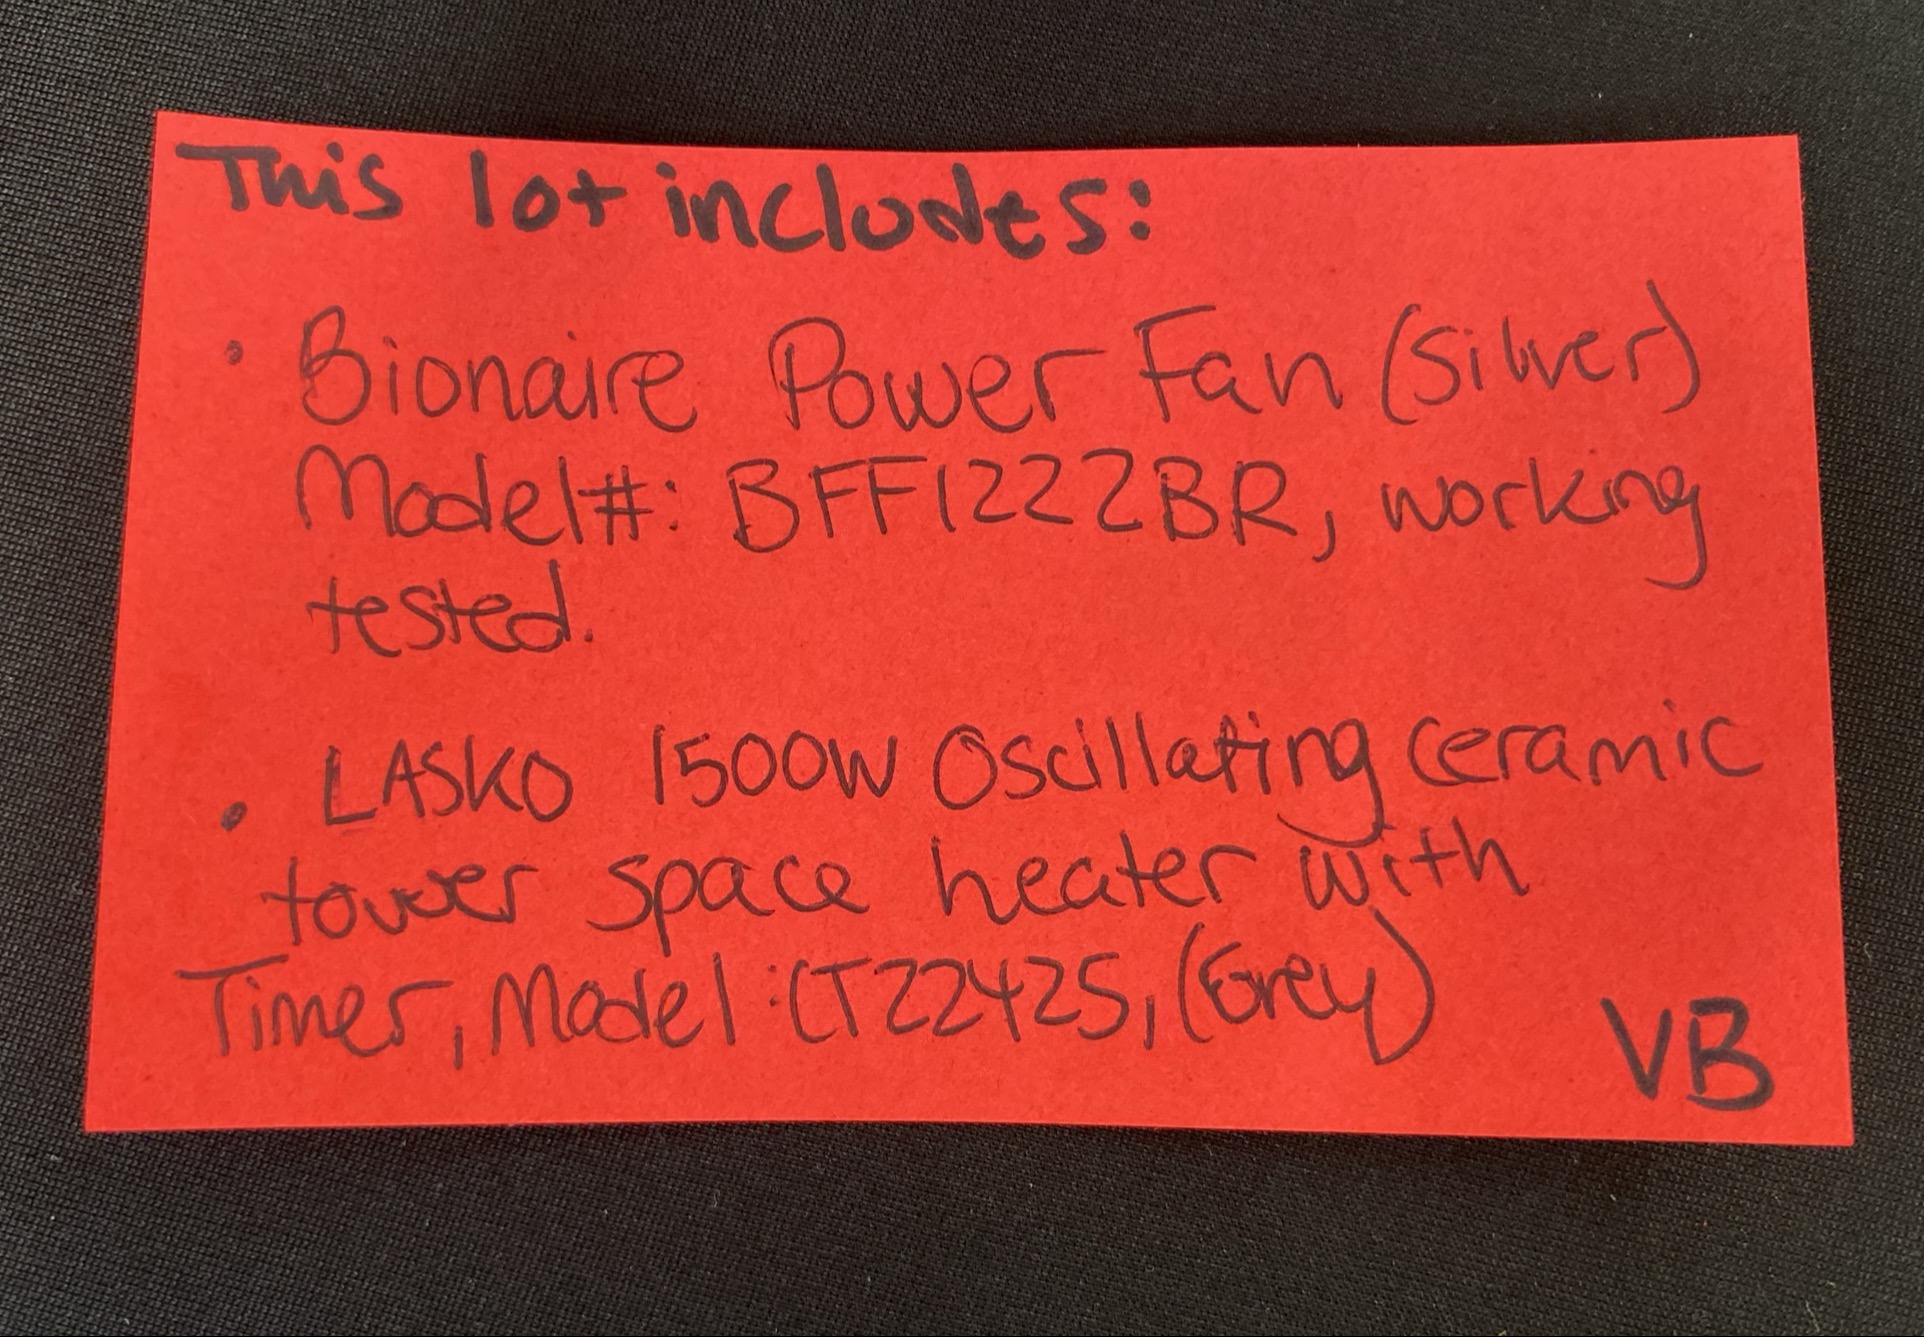 This lot includes:
• Bionaire Power Fan (Silver)
Model#: BFF1222BR, working
tested.
• LASKO 1500W Oscillating Ceramic
tower space heater with
Timer, Model: CT22425, (Grey)
VB